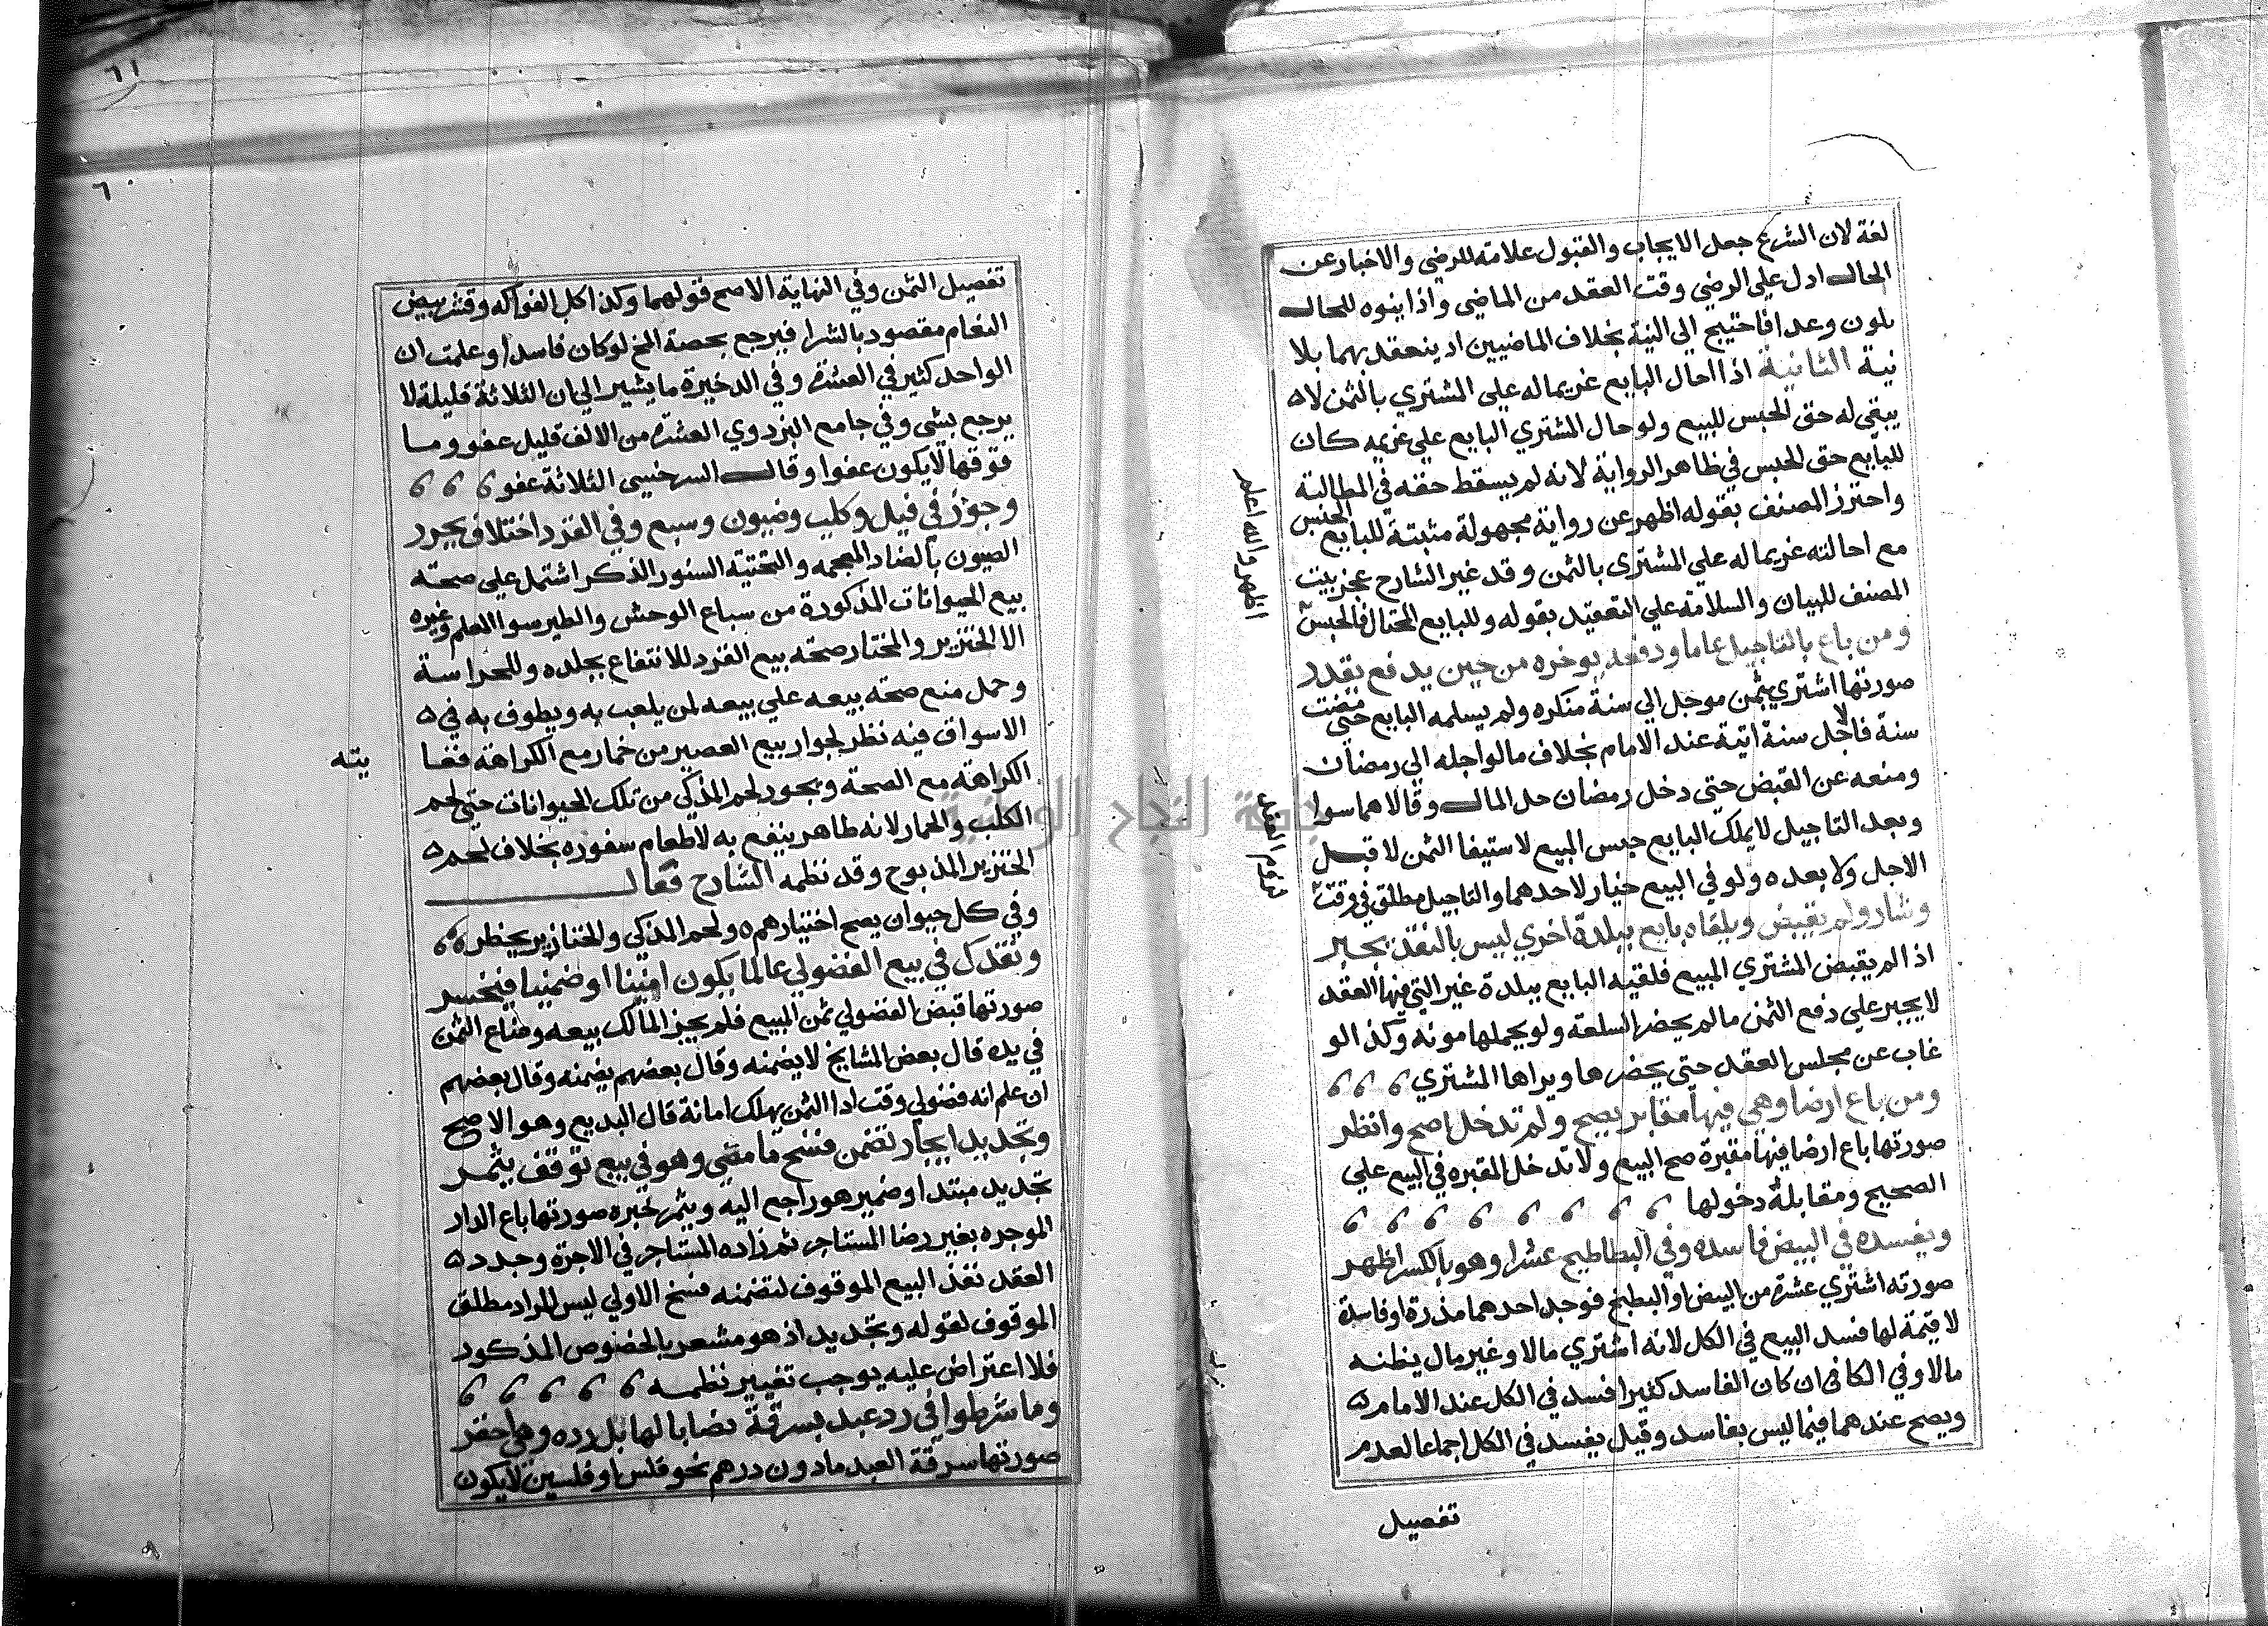 لغة لان الشرع جعل الايجاب والقبول علامة للرضي والاخبار عن
الحال ادل علي الرضي وقت العقد من الماضي واذا ينوه للحال
يلون وعدا فاحتيج الي النية بخلاف الماضيين اذ ينعقد بهما بلا
نية الثانية اذا احال البايع غريما له علي المشتري بالثمن لا
يبقي له حق الحبس للبيع ولو حال المشتري البايع علي غريمه كان
للبايع حق الحبس في ظاهر الرواية لانه لم يسقط حقه في المطالبة
واحترز المصنف بقوله اظهر عن رواية مجهولة مثبتة للبايع الحبس
مع احالته غريما له علي المشتري بالثمن وقد غير الشارح عجز بيت
المصنف للبيان والسلامة علي التعقيد بقوله وللبايع المحتال فالحبس
اظهر والله اعلم
ومن باع بالتاجيل عاما ودفعه يوخره من حين يدفع يقدر
صورتها اشتري بثمن موجل الي سنة منكره ولم يسلمه البايع حتي مضت
سنة فالاجل سنة اتية عند الامام بخلاف ما لو اجله الي رمضان
ومنعه عن القبض حتي دخل رمضان حل المال وقالا هما سوا
وبعد التاجيل لا يملك البايع حبس المبيع لاستيفا الثمن لا قبل
الاجل ولا بعده ولو في البيع خيار لاحدهما والتاجيل مطلق في وقت
لزوم العقد
وشار ولم يقبض ويلقاه بايع ببلدة اخري ليس بالنقد يجبر
اذا لم يقبض المشتري المبيع فلقيه البايع ببلدة غير التي فيها العقد
لا يجبر علي دفع الثمن ما لم يحضر السلعة ولو بحملها مونه وكذا لو
غاب عن مجلس العقد حتي يحضرها ويراها المشتري
ومن باع ارضا وهي فيها مقابر يصح ولم تدخل اصح وانظر
صورتها باع ارضا فيها مقبرة صح البيع ولا تدخل المقبره في البيع علي
الصحيح ومقابلة دخولها
ويفسده في البيض فاسده وفي البطاطيخ عشرا وهو بالكسر اظهر
صورته اشتري عشرة من البيض او البطيخ فوجد احدهما مذرة او فاسدة
لا قيمة لها فسد البيع في الكل لانه اشتري مالا وغير مال يظنه
مالا وفي الكافي ان كان الفاسد كثيرا فسد في الكل عند الامام
ويصح عندهما فيما ليس بفاسد وقيل يفسد في الكل اجماعا لعدم
تفصيل
٦١
٦٠
تفصيل الثمن وفي النهاية الاصح قولهما وكذا كل الفواكه وقشر بيض
النعام مقصود بالشرا فيرجع بحصة المخ لو كان فاسدا وعلمت ان
الواحد كثير في العشرة وفي الدخيرة ما يشير الي ان الثلاثة قليلة لا
يرجع بشي وفي جامع البزدوي العشرة من الالف قليل عفو وما
فوقها لا يكون عفوا وقال السرخسي الثلاثة عفو
وجوز في فيل وكلب وضيون وسبع وفي القرد اختلاف يحرر
الضيون بالضاد المعجمه والتحتية السنور الذكر اشتمل علي صحة
بيع الحيوانات المذكورة من سباع الوحش والطير سوا المعلم وغيره
الا الخنزير والمختار صحة بيع القرد للانتفاع بجلده وللحراسة
وحمل منع صحة بيعه علي بيعه لمن يلعب به ويطوف به في
الاسواق فيه نظر لجواز بيع العصير من خمار مع الكراهة فغا
يته
الكراهة مع الصحة ويجوز لحم المذكي من تلك الحيوانات حتي لحم
الكلب والحمار لانه طاهر ينفع به لاطعام سنوره بخلاف لحم
الخنزير المذبوح وقد نظمه الشارح فقال
وفي كل حيوان يصح اختيارهم ولحم المذكي والخنازير يحظر
ونقدك في بيع الفضولي عالما يكون امينا او ضمينا فيخسر
صورتها قبض الفضولي ثمن المبيع فلم يجز المالك بيعه وضاع الثمن
في يده قال بعض المشايخ لا يضمنه وقال بعضهم يضمنه وقال بعضهم
ان علم انه فضولي وقت ادا الثمن يهلك امانة قال البديع وهو الاصح
وتجديد ايجار تضمن فسخ ما مضي وهو في بيع توقف يثمر
تجديد مبتدا وضمير هو راجع اليه ويثمر خبره صورتها باع الدار
الموجره بغير رضا المستاجر ثم زاده المستاجر في الاجرة وجدد
العقد نفذ البيع الموقوف لتضمنه فسخ الاولي ليس المراد مطلق
الموقوف لقوله وتجديد اذ هو مشعر بالخصوص المذكور
فلا اعتراض عليه يوجب تغيير نظمه
وما شرطوا في رد عبد بسرقة نصابا لها بل رده وهي احقر
صورتها سرقة العبد ما دون درهم نحو فلس او فلسين لا يكون
جامعة النجاح الوطنية